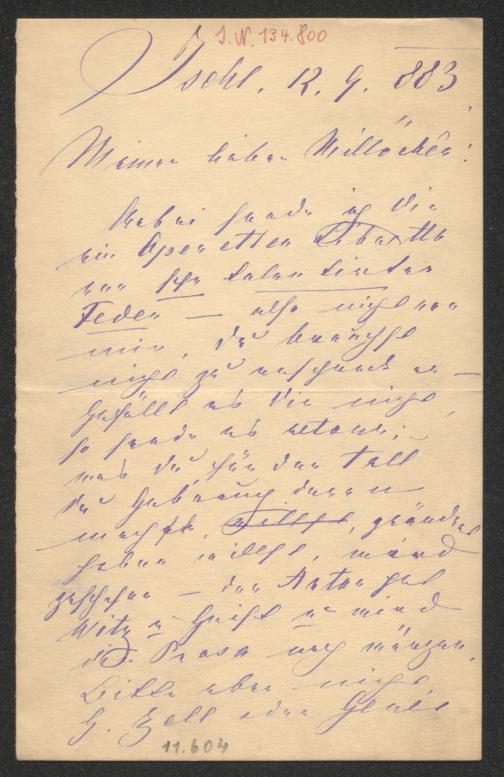 I.N. 134.800
Ischl, 12. 9. 883
Meinen lieben Millöcker!
Anbei sende ich Dir
ein Operetten Libretto
von sehr talentirter
Feder — also nicht von
mir, Du brauchst
nicht zu erschrecken —
Gefällt es Dir nicht,
so sende es retour;
was Du für den Fall
Du Gebrauch davon
machst, willst, geändert
haben willst, wird
geschehen — der Autor hat
Witz u Geist u wird
die Prosa noch würzen.
Bitte aber nicht
G. Zell oder Genée
11.604